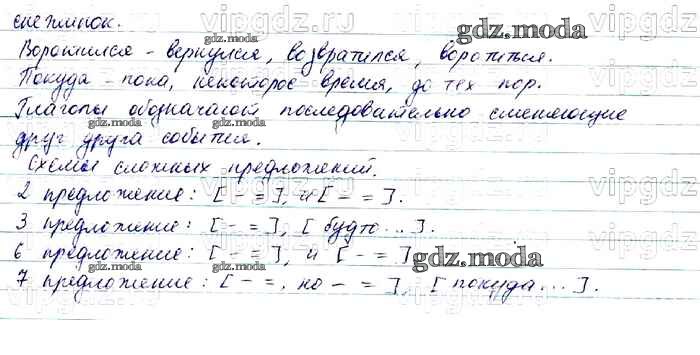 снежинок.
Воротился - вернулся, возвратился, воротиться.
Покуда - пока, некоторое время, до тех пор.
Глаголы обозначают последовательно сменяющие
друг друга события.
Схемы сложных предложений.
2 предложение: [ - = ], и [ - = ].
3 предложение: [ - = ], [ будто ... ].
6 предложение: [ - = ], и [ - = ]
7 предложение: [ - =, но - = ], [ покуда ... ].
gdz.moda
gdz.moda
gdz.moda
gdz.moda
gdz.moda
gdz.moda
gdz.moda
gdz.moda
vipgdz
vipgdz.ru
vipgdz
vipgdz.ru
vipgdz